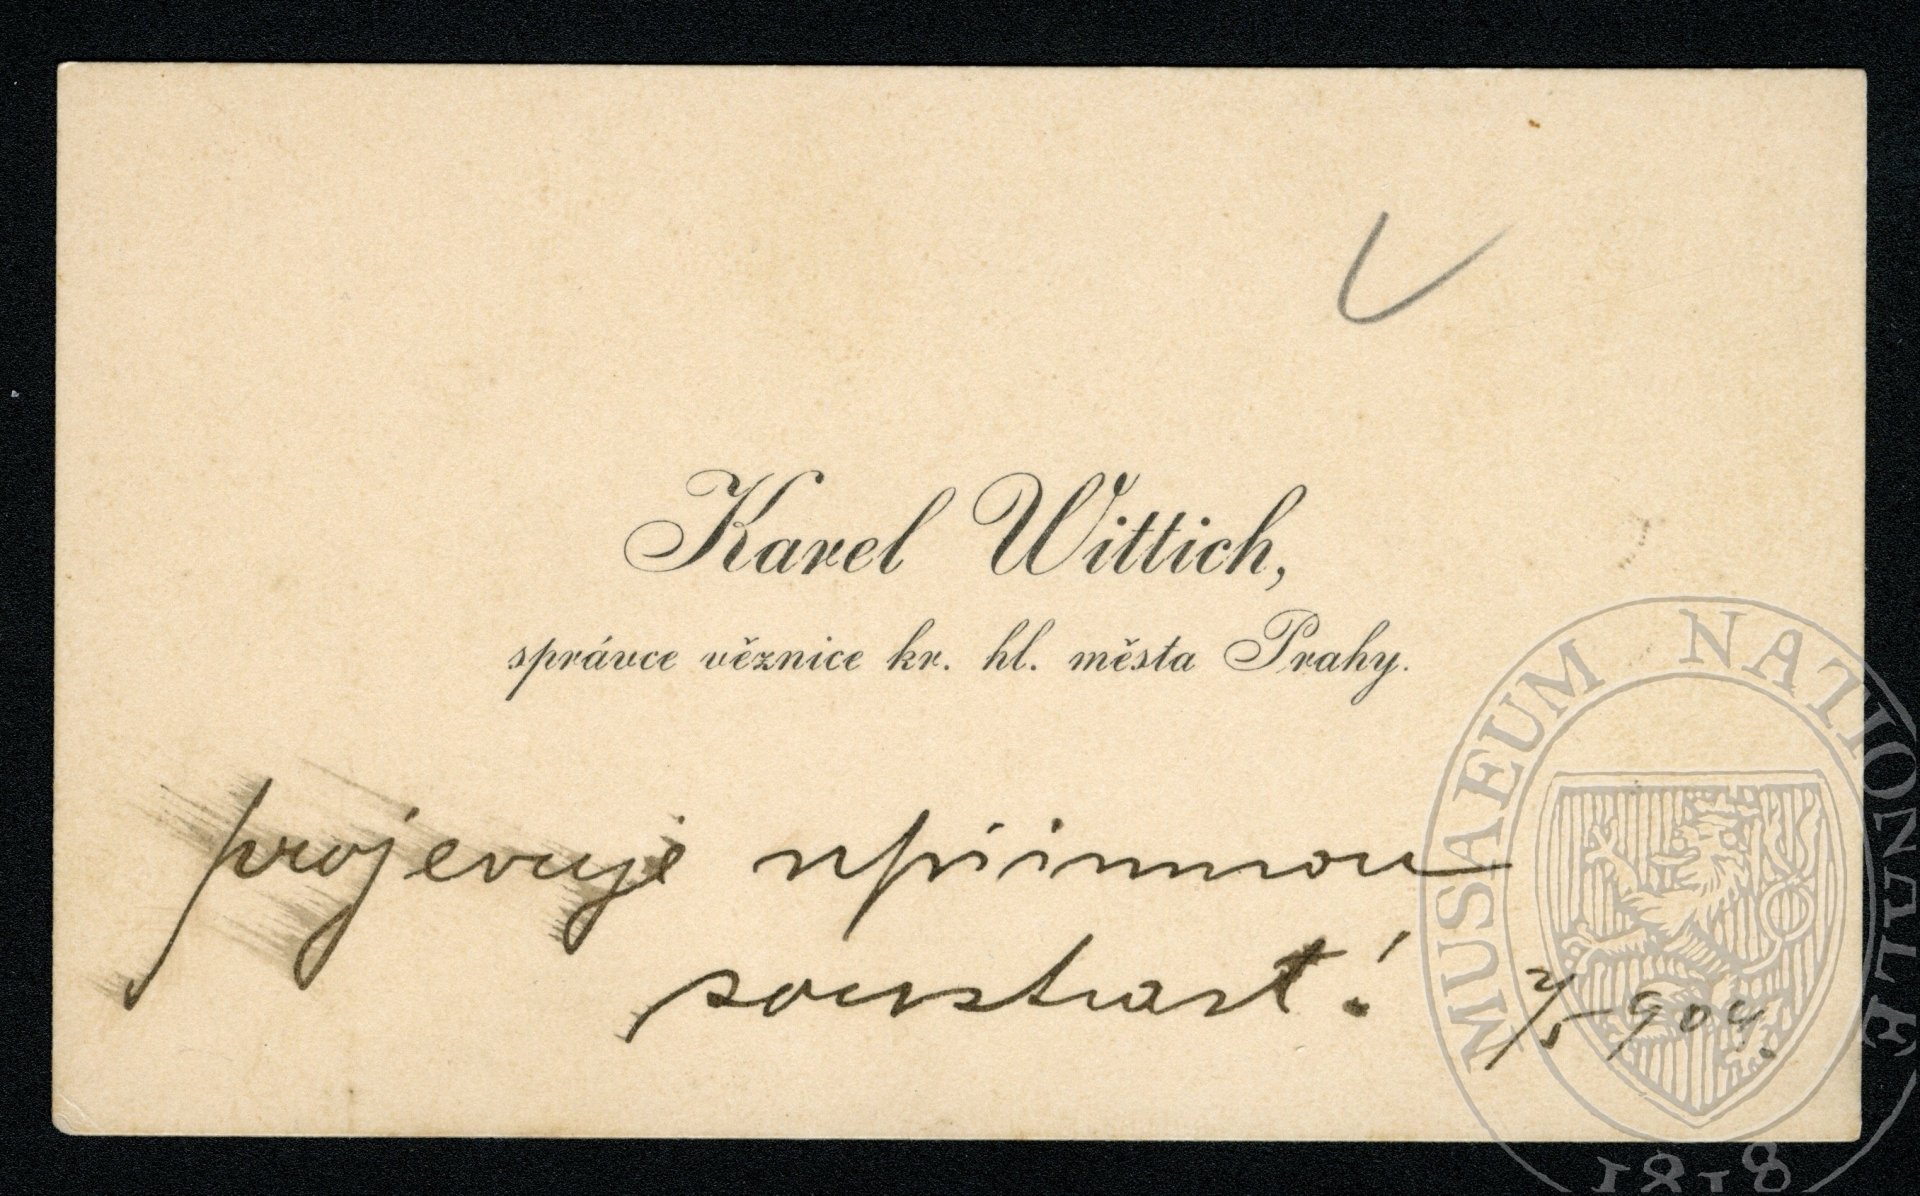 Karel Wittich,
správce věznice kr. hl. města Prahy.
projevuje upřimnou
soustrast!
2/5 904.
MUSAEUM NATIONALE
1818